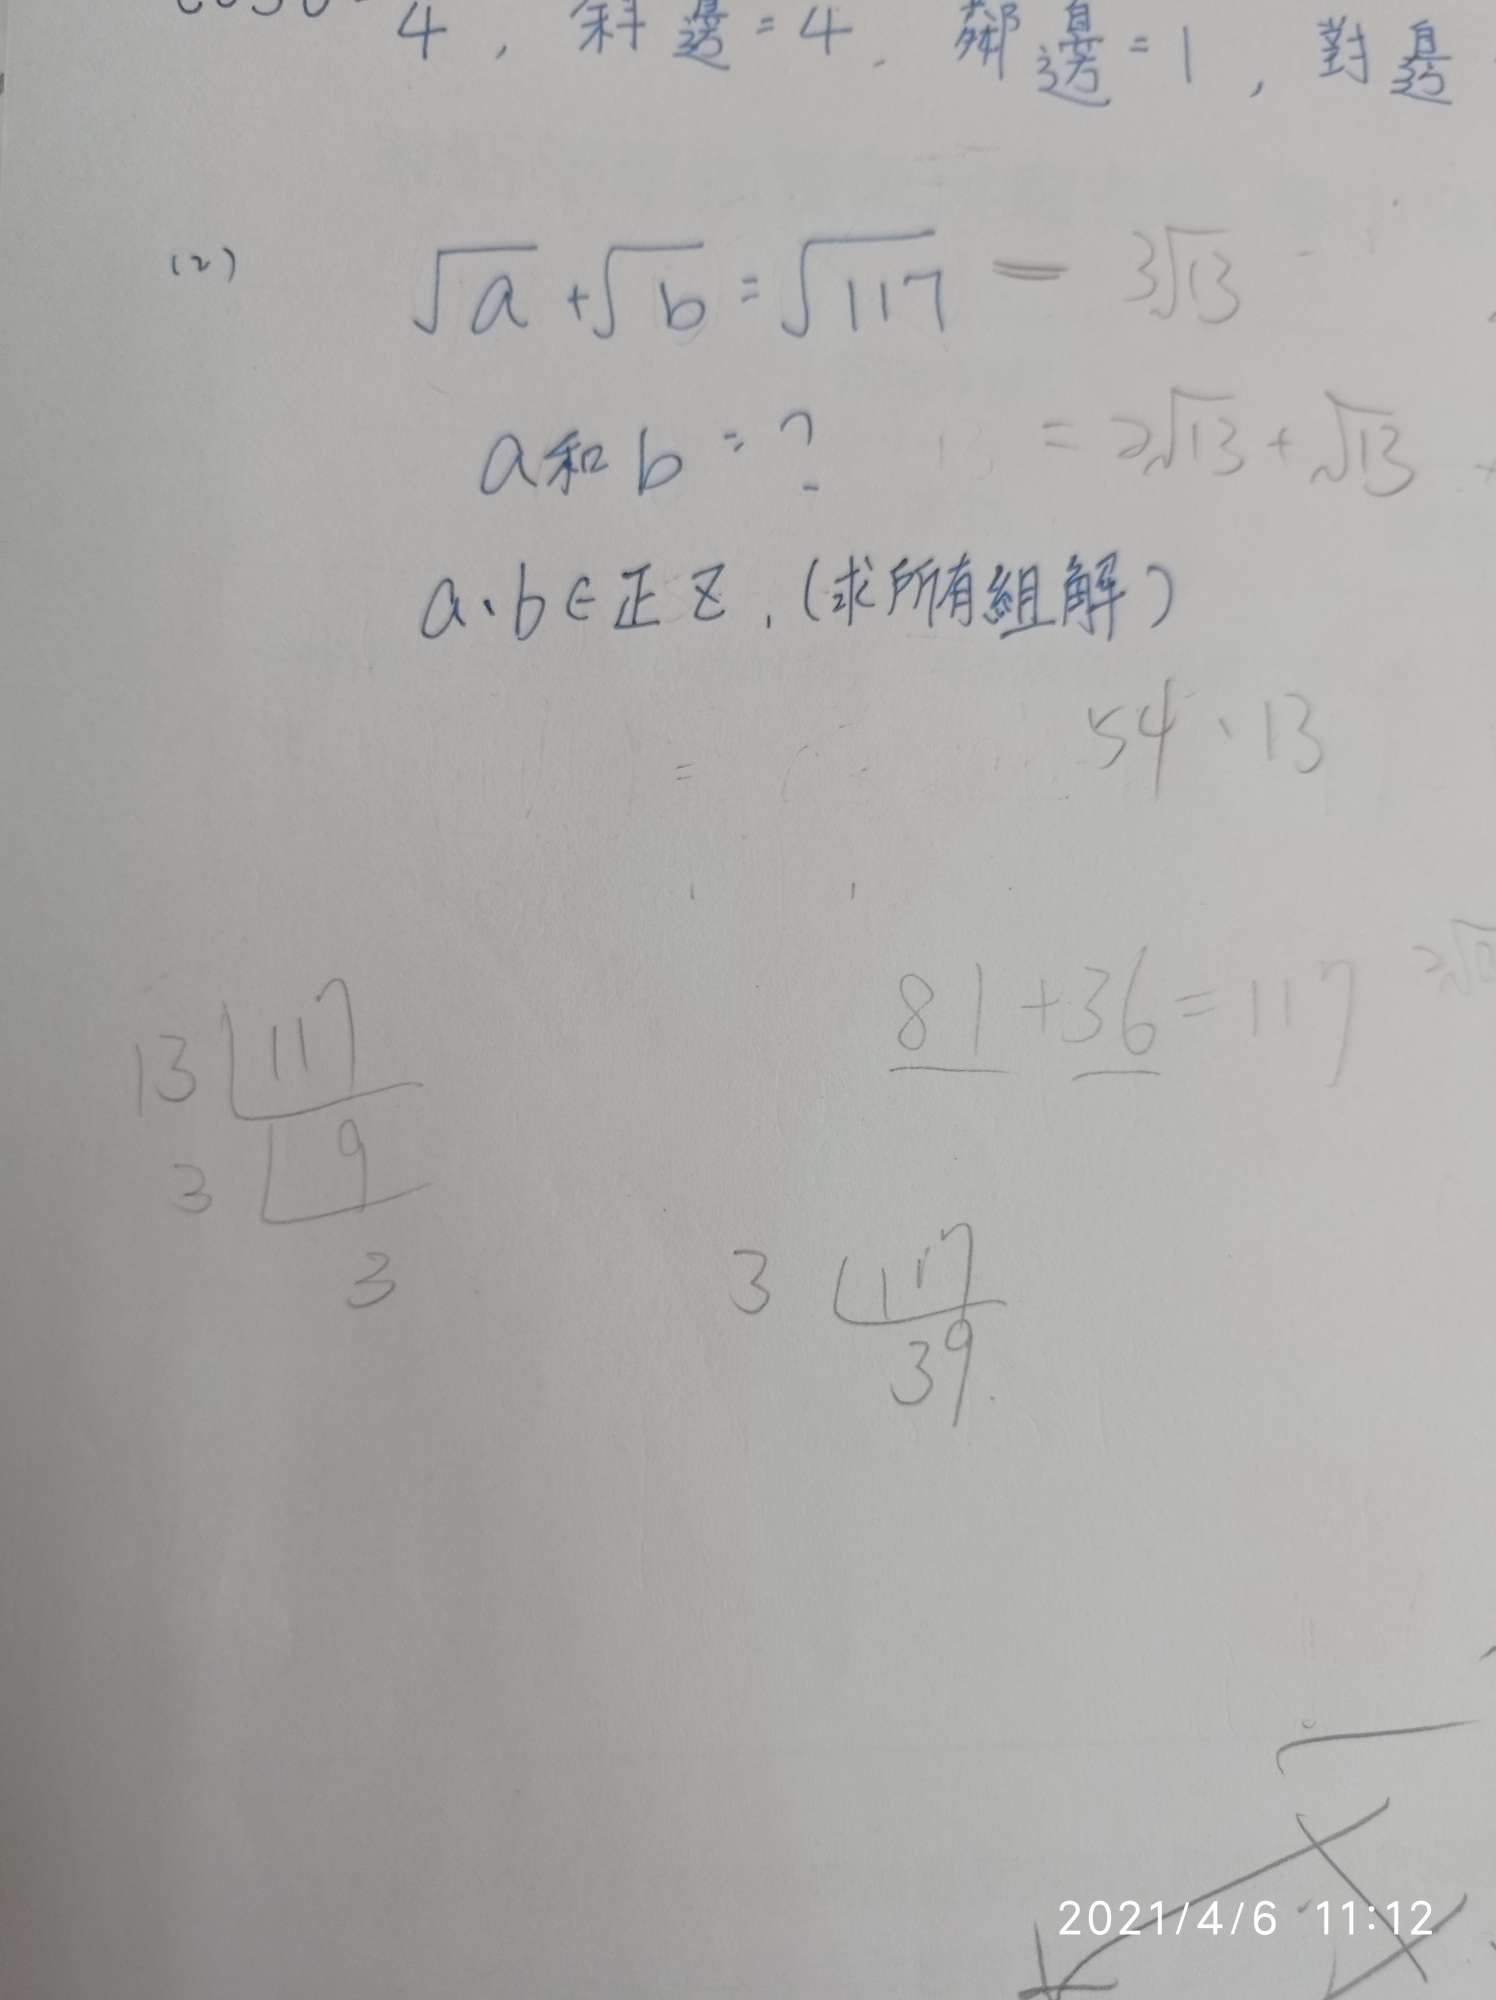 4, 斜邊=4, 鄰邊=1, 對邊
(2) √a+√b=√117 = 3√13
a和b=? = 2√13+√13
a、b∈正Z, (求所有組解)
54、13
81+36=117
13 117
3 9
3
3 117
39
2021/4/6 11:12